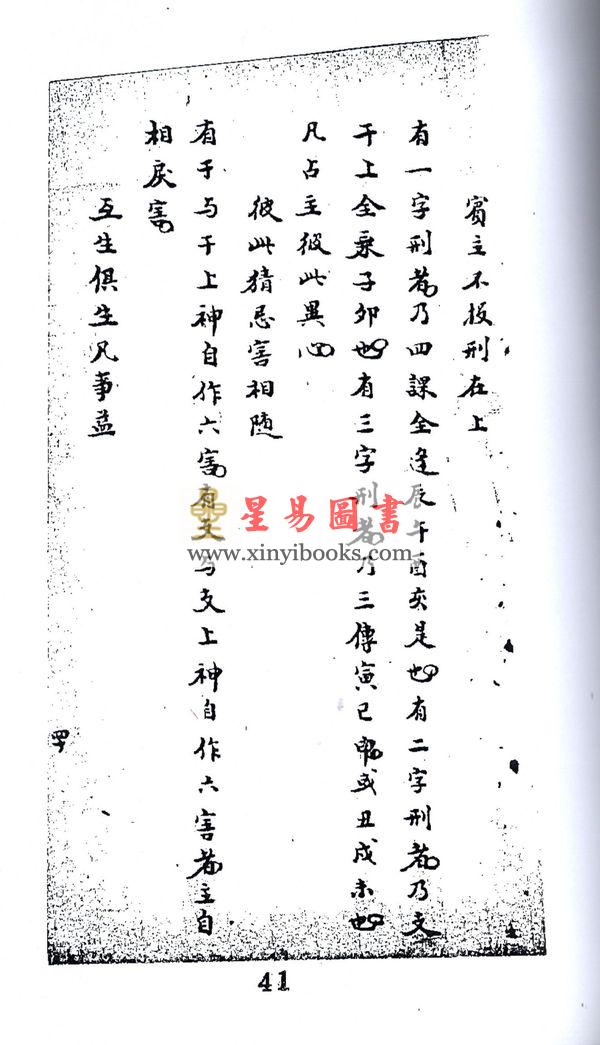 賓主不投刑在上
有一字刑者乃四課全逢辰午酉亥是也有二字刑者乃支
干上全乘子卯也有三字刑者乃三傳寅巳申或丑戌未也
凡占主彼此異心
彼此猜忌害相隨
有干与干上神自作六害有支与支上神自作六害者主自
相戾害
互生俱生凡事益
四十
星易圖書
www.xinyibooks.com
41